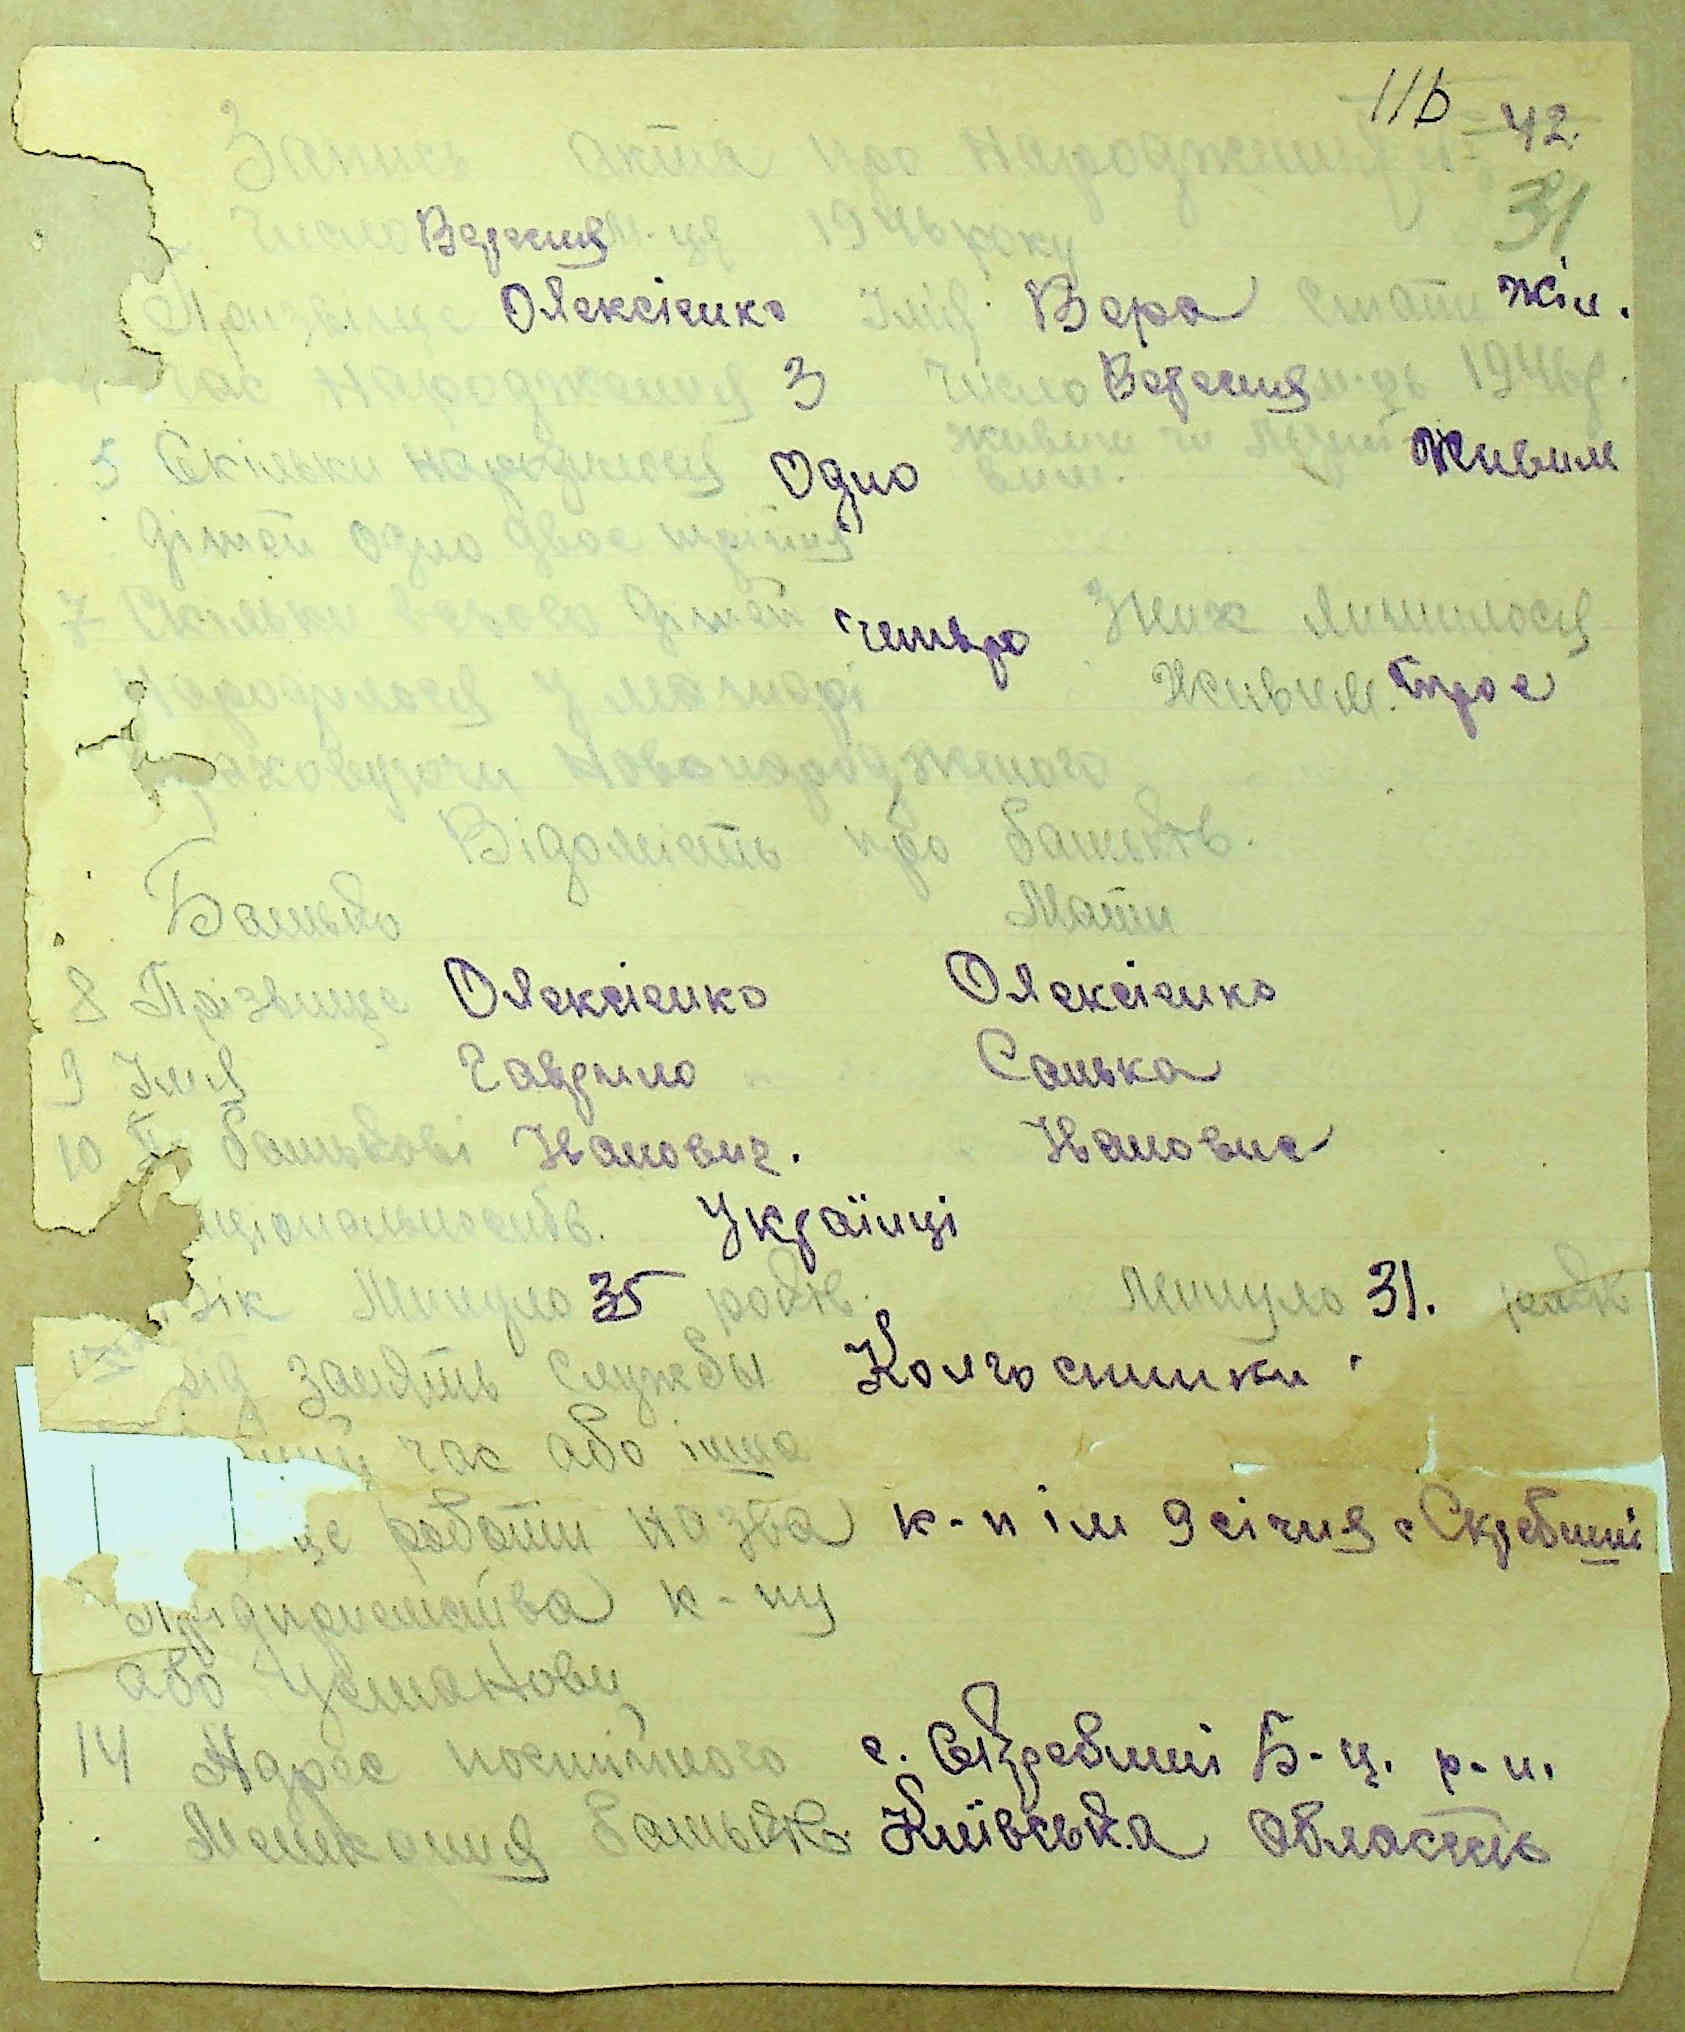 11b 42.
Запись акта про народження №
31
число Вересня м-ця 1946 року
Прізвище Олексієнко Імя Вера Стать Жін.
Час народження 3 число Вересня м-ць 1946 р.
5 Скільки народилося Одно живим чи Живим
дітей одно двоє трійня
7 Скільки всього дітей четверо З них лишилося
народилося у матері живим. троє
раховуючи новонародженого
Відомість про батьків.
Батько Мати
8 Прізвище Олексієнко Олексієнко
9 Імя Гаврило Санька
10 По батькові Іванович. Івановна
ціональность. Українці
вік Минуло 35 років. Минуло 31. років
рід занять служби Колгоспники
час або інше
це работи назва к-п ім 9 січня с Скребиші
підприємства к-пу
або установи
14 Адрес постійного с. Скребиші Б-ц. р-н.
Мешкання батьків Київська область